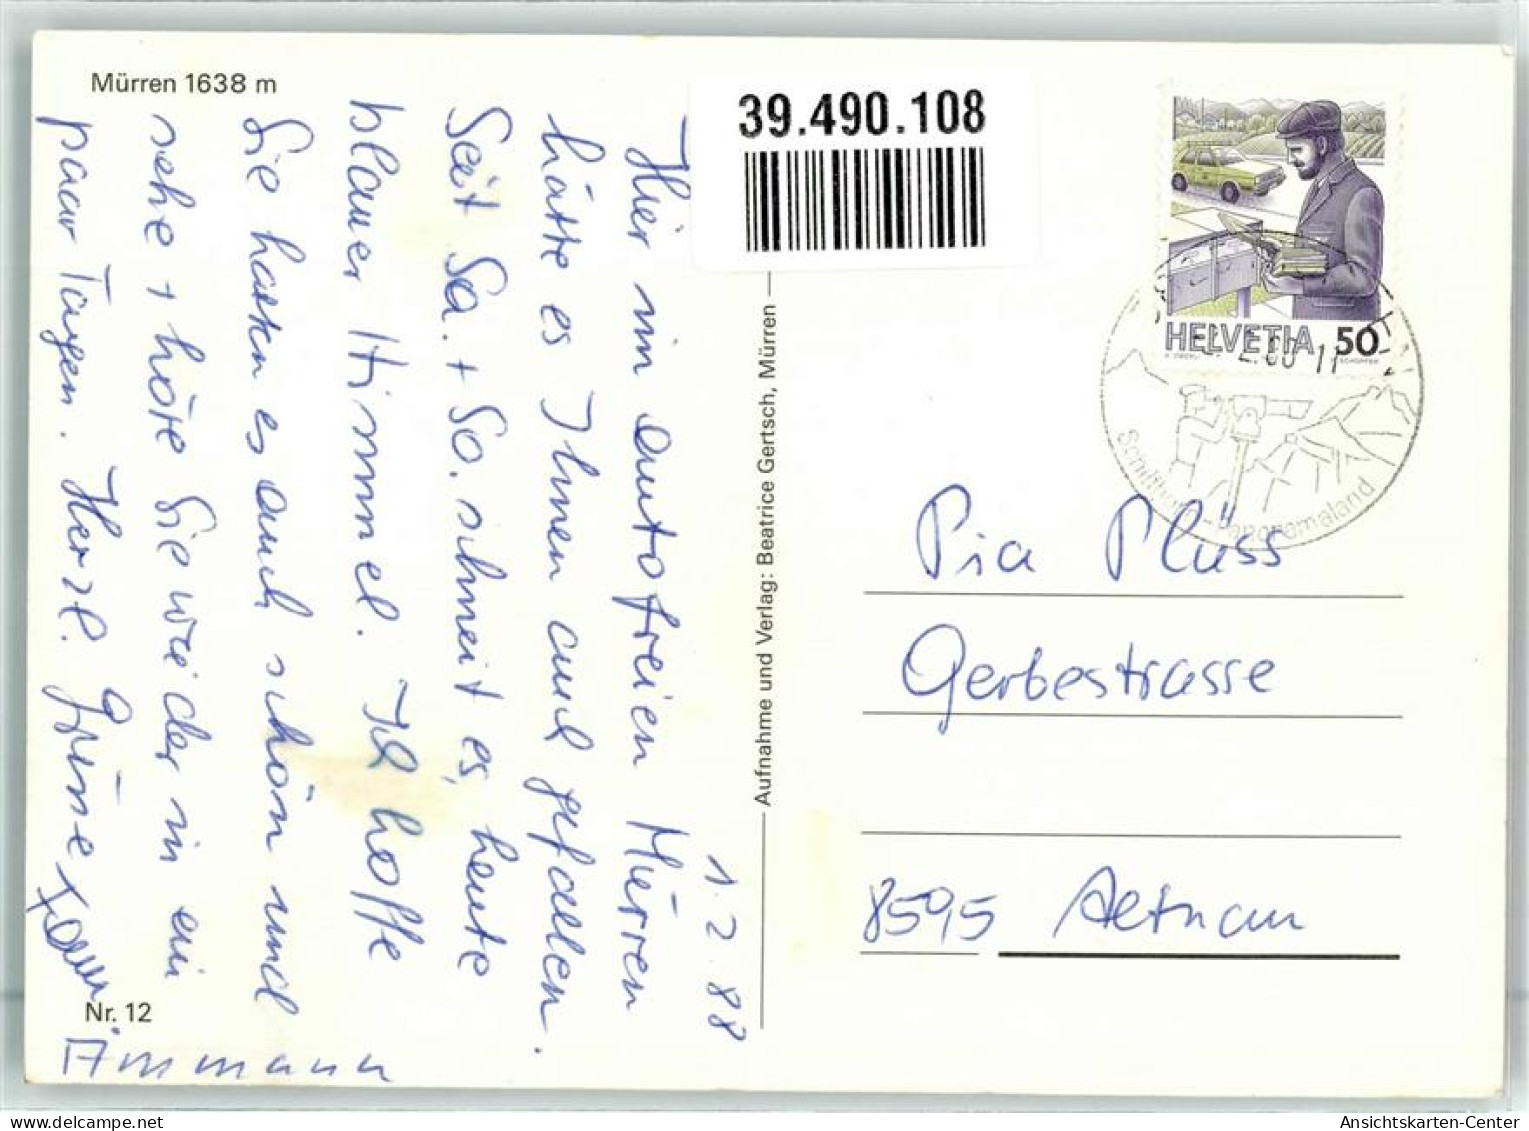 Mürren 1638 m
39.490.108
1.2.88
Hier im autofreien Mürren
hätte es Ihnen auch gefallen.
Seit Sa. + So. schneit es, heute
blauer Himmel. Ich hoffe
Sie hatten es auch schön und
sehe + höre Sie wieder in ein
paar Tagen. Herzl. Grüsse
Fam.
Ammann
Nr. 12
Aufnahme und Verlag: Beatrice Gertsch, Mürren
HELVETIA 50
Schilthorn - Panoramaland
Pia Plüss
Gerbestrasse
8595 Altnau
delcampe.net
Ansichtskarten-Center